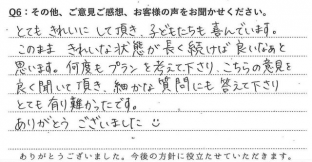 Q6：その他、ご意見ご感想、お客様の声をお聞かせください。
とても きれいにして頂き、子どもたちも喜んでいます。
このまま きれいな状態が長く続けば良いなぁと
思います。何度もプランを考えて下さり、こちらの意見を
良く聞いて頂き、細かな質問にも答えて下さり
とても有り難かったです。
ありがとう ございました
ありがとうございました。今後の方針に役立たせていただきます。